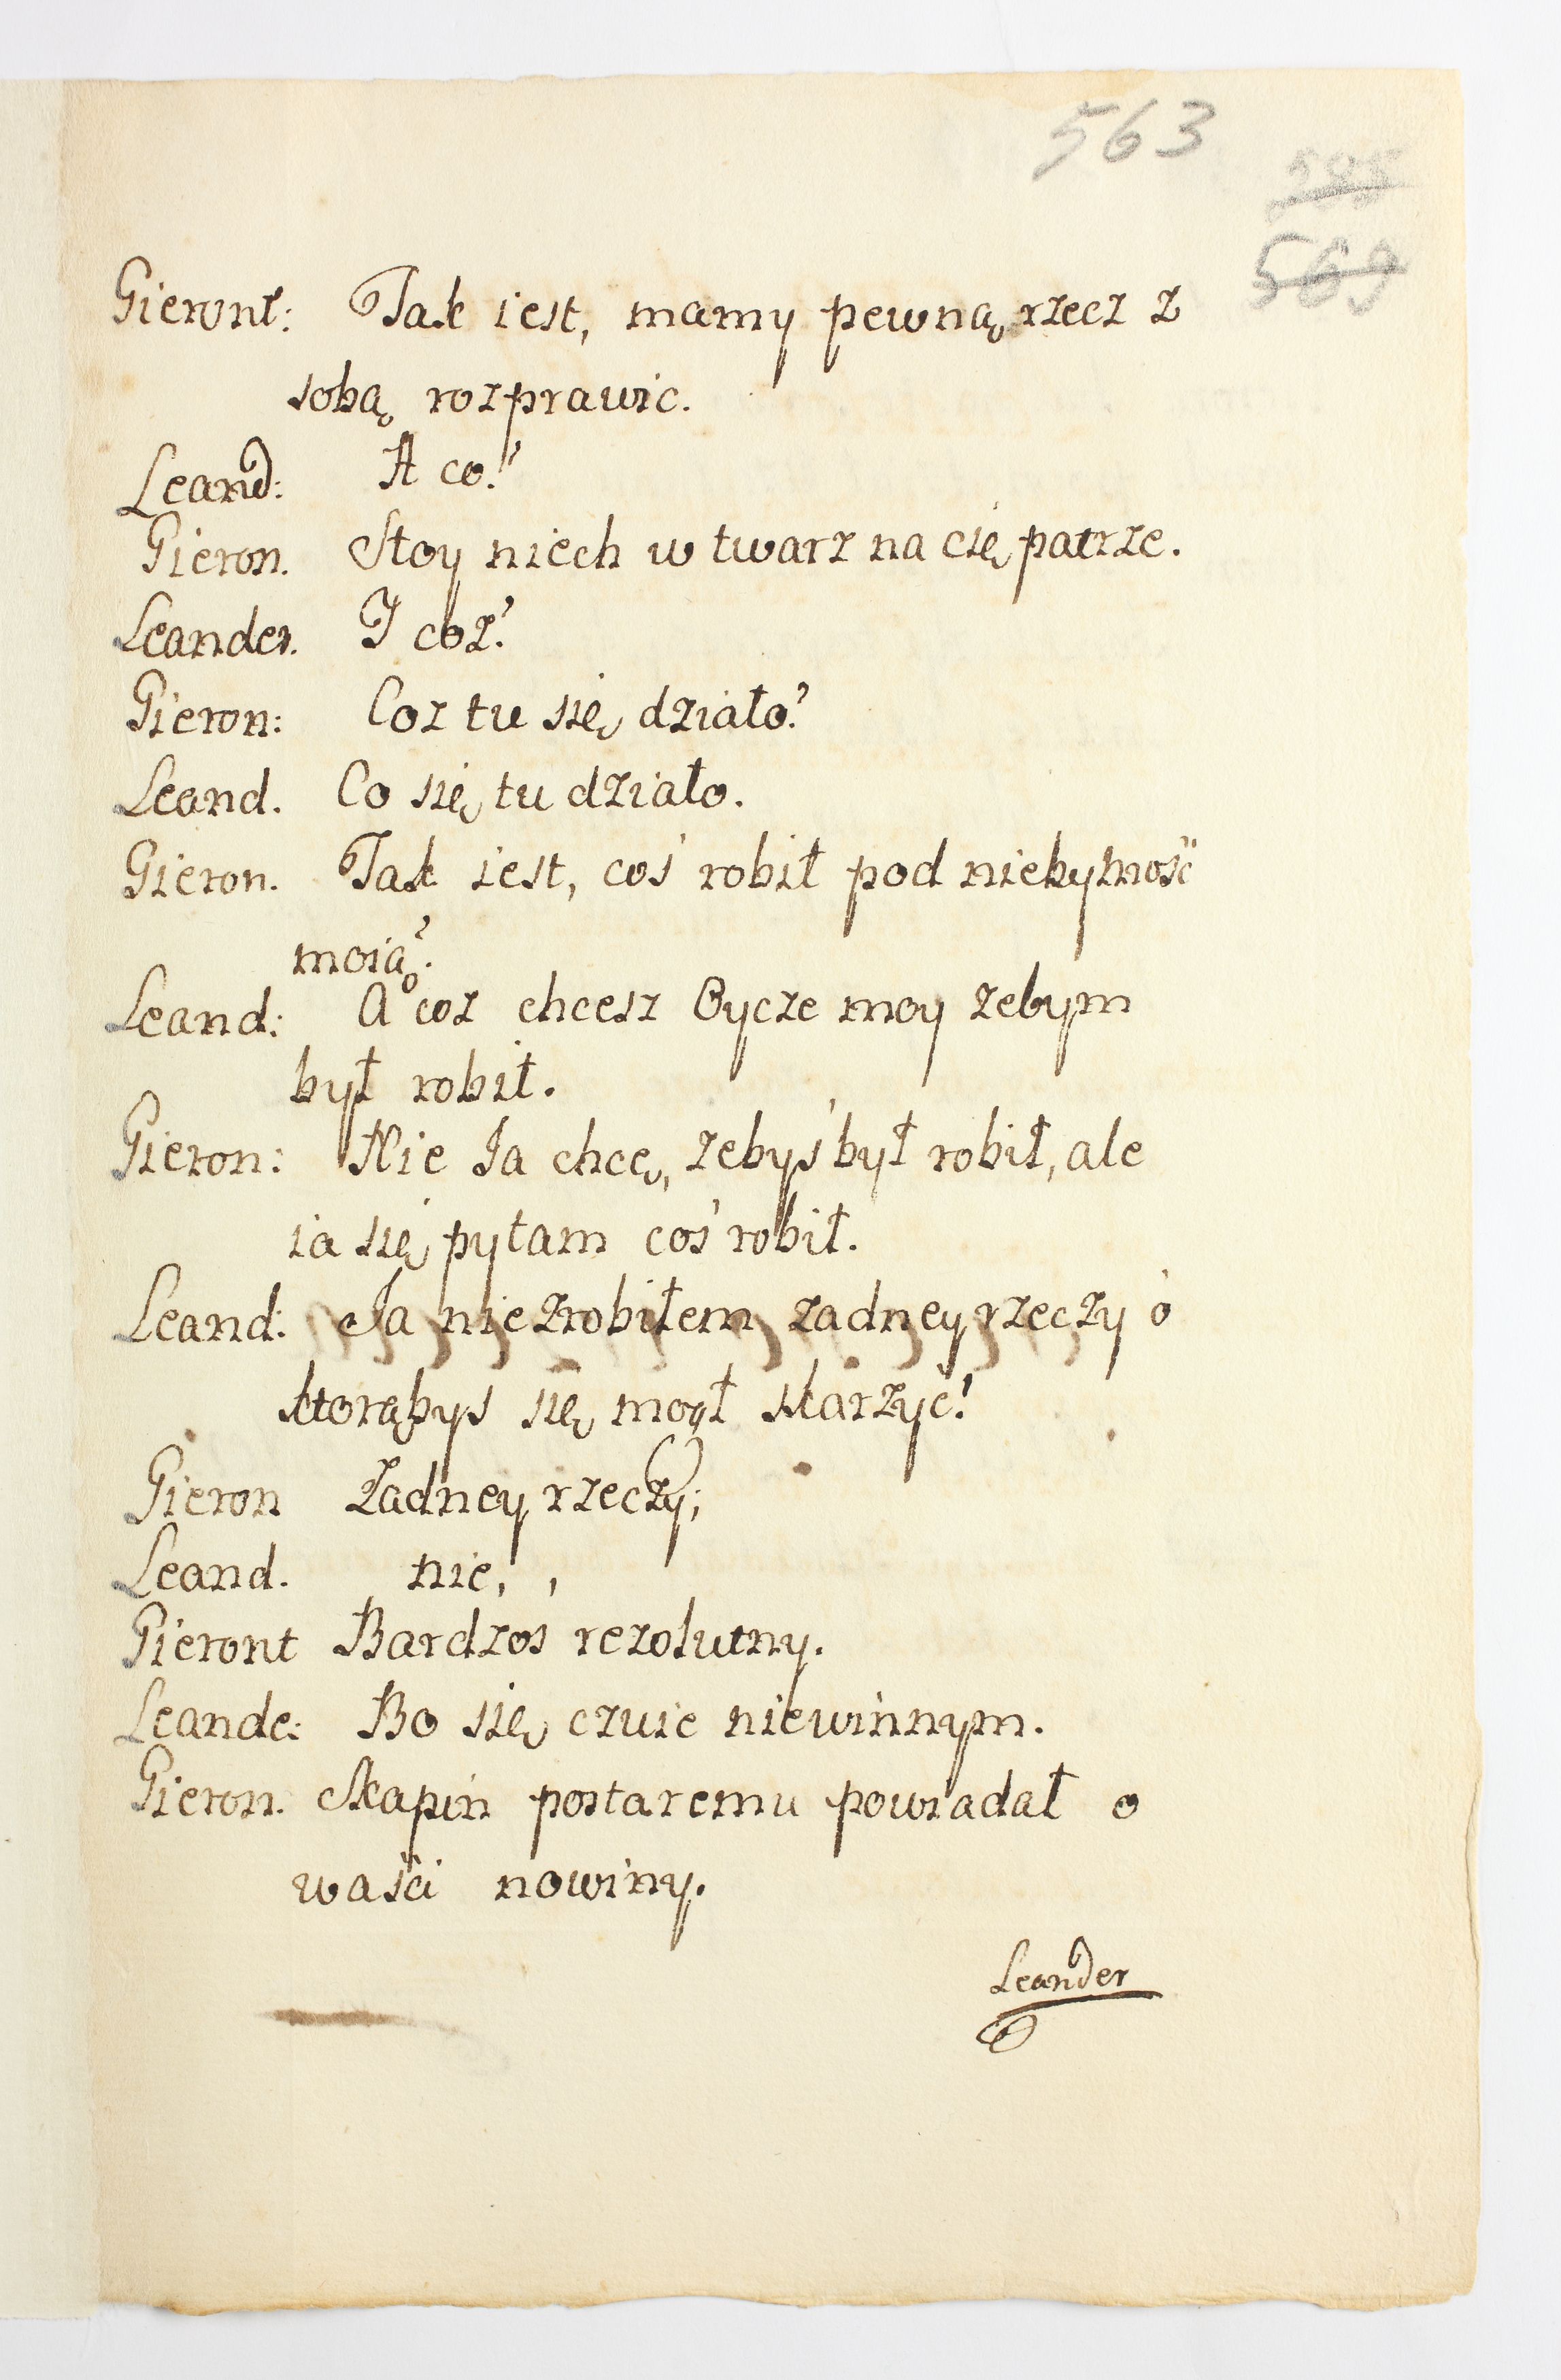 563
569
Gieront: Tak iest, mamy pewną rzecz z
sobą rozprawic.
Leand: A co?
Gieron. Stoy niech w twarz na cię patrze.
Leander. I coz?
Gieron: Coz tu się działo?
Leand. Co się tu działo.
Gieron. Tak iest, coś robił pod niebymość
moią?
Leand: A coz chcesz Oycze moy zebym
był robił.
Gieron: Nie Ja chcę, zebyś był robił, ale
ia się pytam coś robił.
Leand: Ja nie zrobiłem zadney rzeczy o
ktorąbys się mogł skarzyć!
Gieron Zadney rzeczy;
Leand. nie, ,
Gieront Bardzoś rezolutny.
Leande: Bo się czuie niewinnym.
Gieron. Skapin postaremu powiadał o
waści nowiny.
Leander